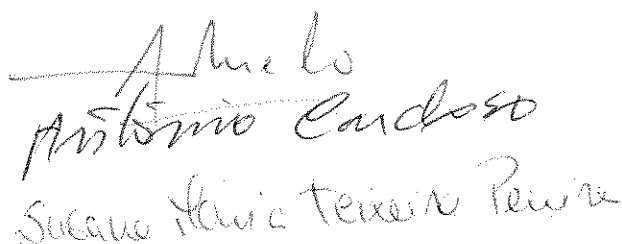 António Cardoso
Susana Maria Teixeira Pereira